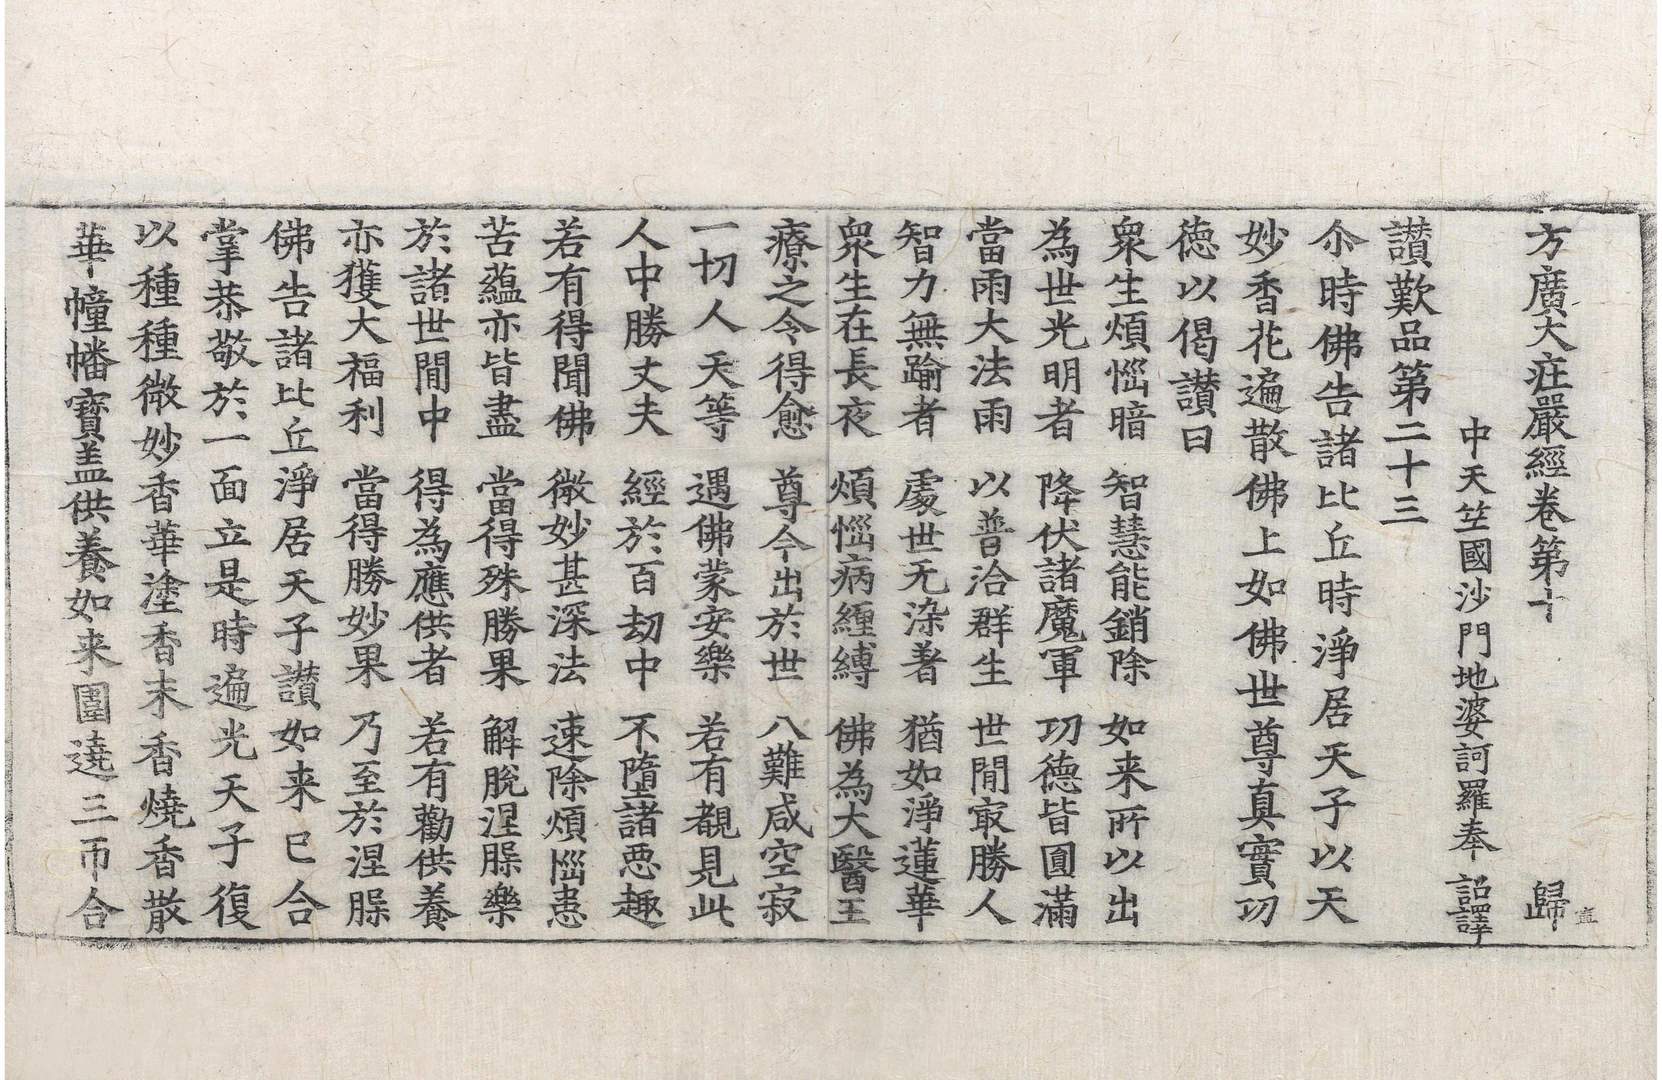 方廣大庄嚴經卷第十 歸
中天竺國沙門地婆訶羅奉 詔譯
讃歎品第二十三
尒時佛告諸比丘時淨居天子以天
妙香花遍散佛上如佛世尊真實功
徳以偈讃曰
衆生煩惱暗 智慧能銷除 如来所以出
為世光明者 降伏諸魔軍 功德皆圓滿
當雨大法雨 以普洽群生 世間㝡勝人
智力無踰者 處世无染著 猶如淨蓮華
衆生在長夜 煩惱病纏縛 佛為大醫王
療之令得愈 尊今出於世 八難咸空寂
一切人天等 遇佛蒙安樂 若有覩見此
人中勝丈夫 經於百劫中 不墮諸惡趣
若有得聞佛 微妙甚深法 速除煩惱患
苦蘊亦皆盡 當得殊勝果 解脫涅槃樂
於諸世間中 得為應供者 若有勸供養
亦獲大福利 當得勝妙果 乃至於涅槃
佛告諸比丘淨居天子讃如来已合
掌恭敬於一面立是時遍光天子復
以種種微妙香華塗香末香燒香散
華幢幡寶盖供養如来圍遶三帀合